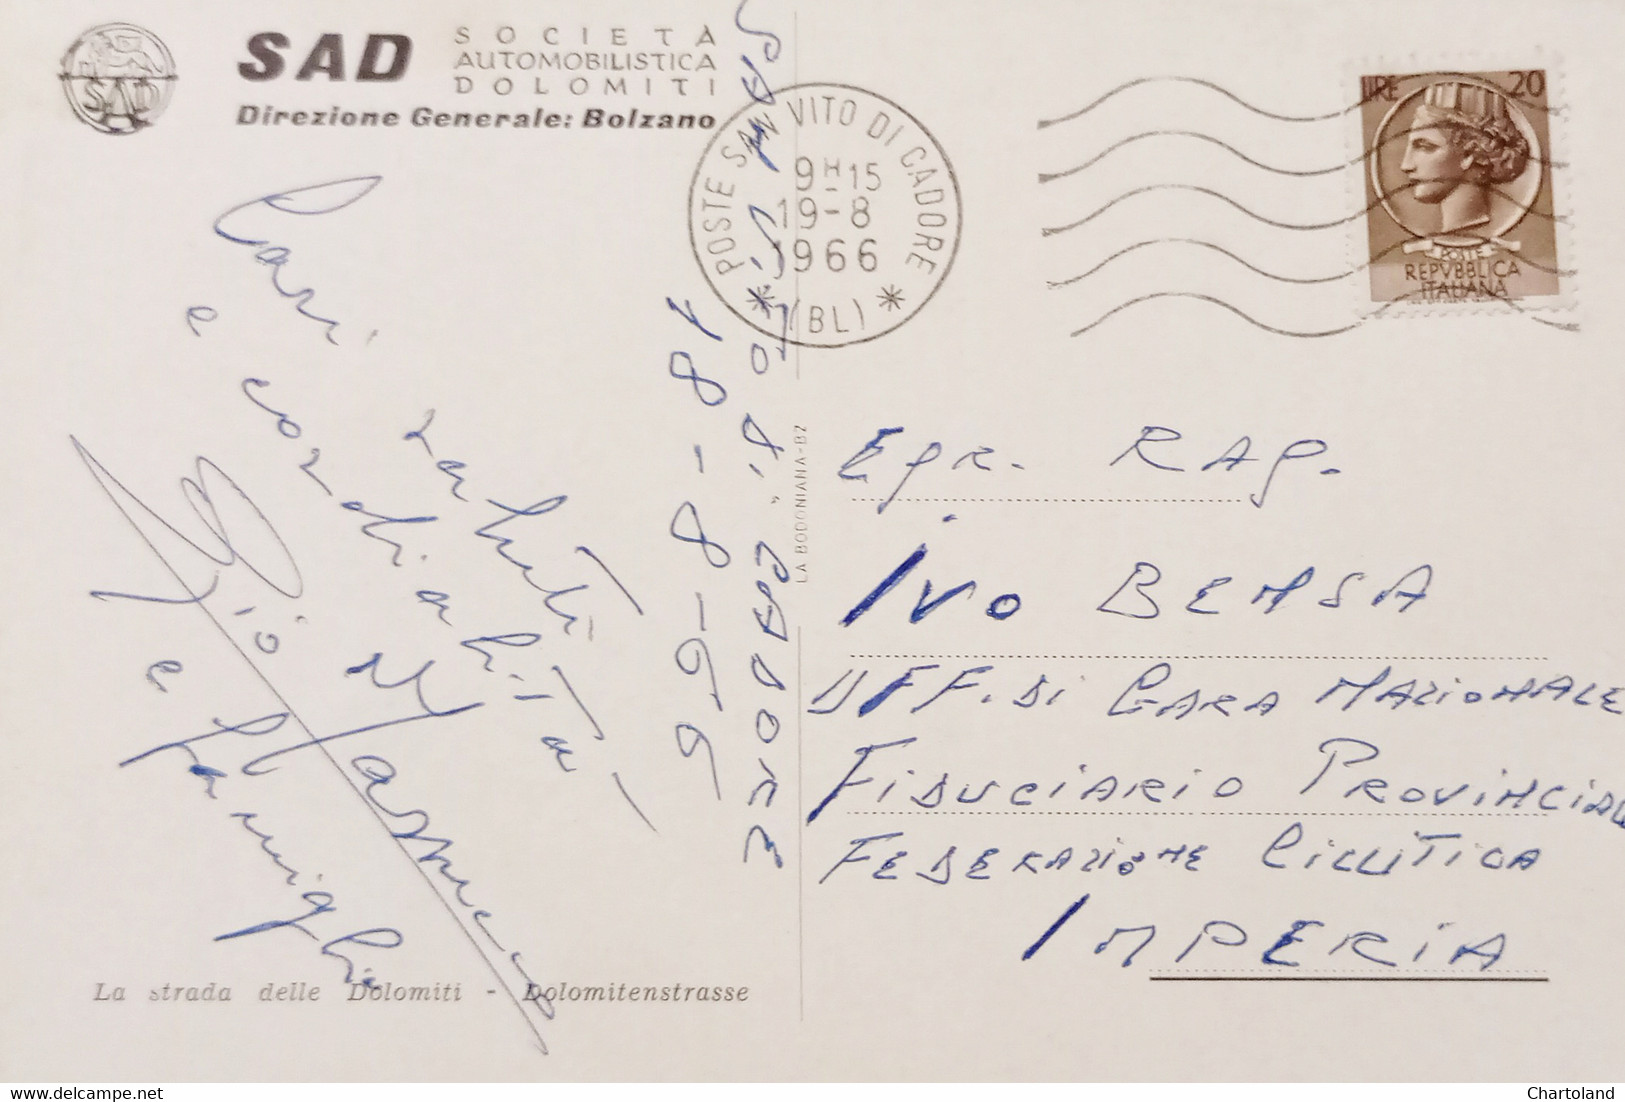 SAD
SOCIETÀ
AUTOMOBILISTICA
DOLOMITI
Direzione Generale: Bolzano
SAD
POSTE SAN VITO DI CADORE
9H15
19-8
1966
(BL)
LIRE 20
POSTE
REPVBBLICA
ITALIANA
Cari saluti
e cordialità
e famiglia
SAN VITO di CADORE
18-8-966
LA BODONIANA-BZ
Egr. RAG.
IVO BENSA
UFF. Di GARA NAZIONALE
FiDUCiARiO PROViNCiALE
FEDERAZIONE CiCLiTiCA
IMPERiA
La strada delle Dolomiti - Dolomitenstrasse
Chartoland